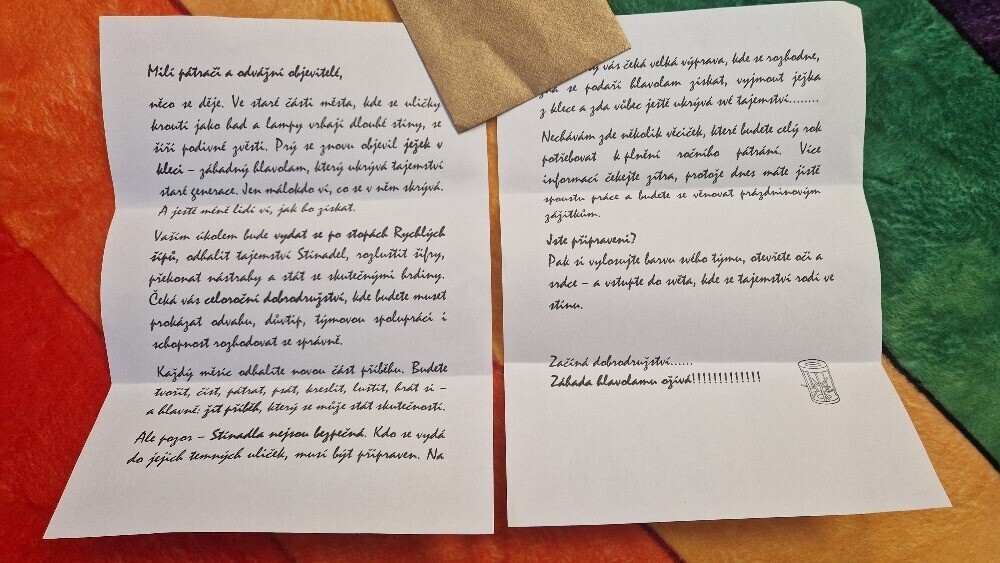 Milí pátrači a odvážní objevitelé,
něco se děje. Ve staré části města, kde se uličky
kroutí jako had a lampy vrhají dlouhé stíny, se
šíří podivné zvěsti. Prý se znovu objevil ježek v
kleci – záhadný hlavolam, který ukrývá tajemství
staré generace. Jen málokdo ví, co se v něm skrývá.
A ještě méně lidí ví, jak ho získat.
Vaším úkolem bude vydat se po stopách Rychlých
šípů, odhalit tajemství Stínadel, rozluštit šifry,
překonat nástrahy a stát se skutečnými hrdiny.
Čeká vás celoroční dobrodružství, kde budete muset
prokázat odvahu, důvtip, týmovou spolupráci i
schopnost rozhodovat se správně.
Každý měsíc odhalíte novou část příběhu. Budete
tvořit, číst, pátrat, psát, kreslit, luštit, hrát si –
a hlavně: žít příběh, který se může stát skutečností.
Ale pozor – Stínadla nejsou bezpečná. Kdo se vydá
do jejich temných uliček, musí být připraven. Na
vás čeká velká výprava, kde se rozhodne,
se podaří hlavolam získat, vyjmout ježka
z klece a zda vůbec ještě ukrývá své tajemství........
Nechávám zde několik věciček, které budete celý rok
potřebovat k plnění ročního pátrání. Více
informací čekejte zítra, protože dnes máte jistě
spoustu práce a budete se věnovat prázdninovým
zážitkům.
Jste připraveni?
Pak si vylosujte barvu svého týmu, otevřete oči a
srdce – a vstupte do světa, kde se tajemství rodí ve
stínu.
Začíná dobrodružství......
Záhada hlavolamu ožívá!!!!!!!!!!!!!!